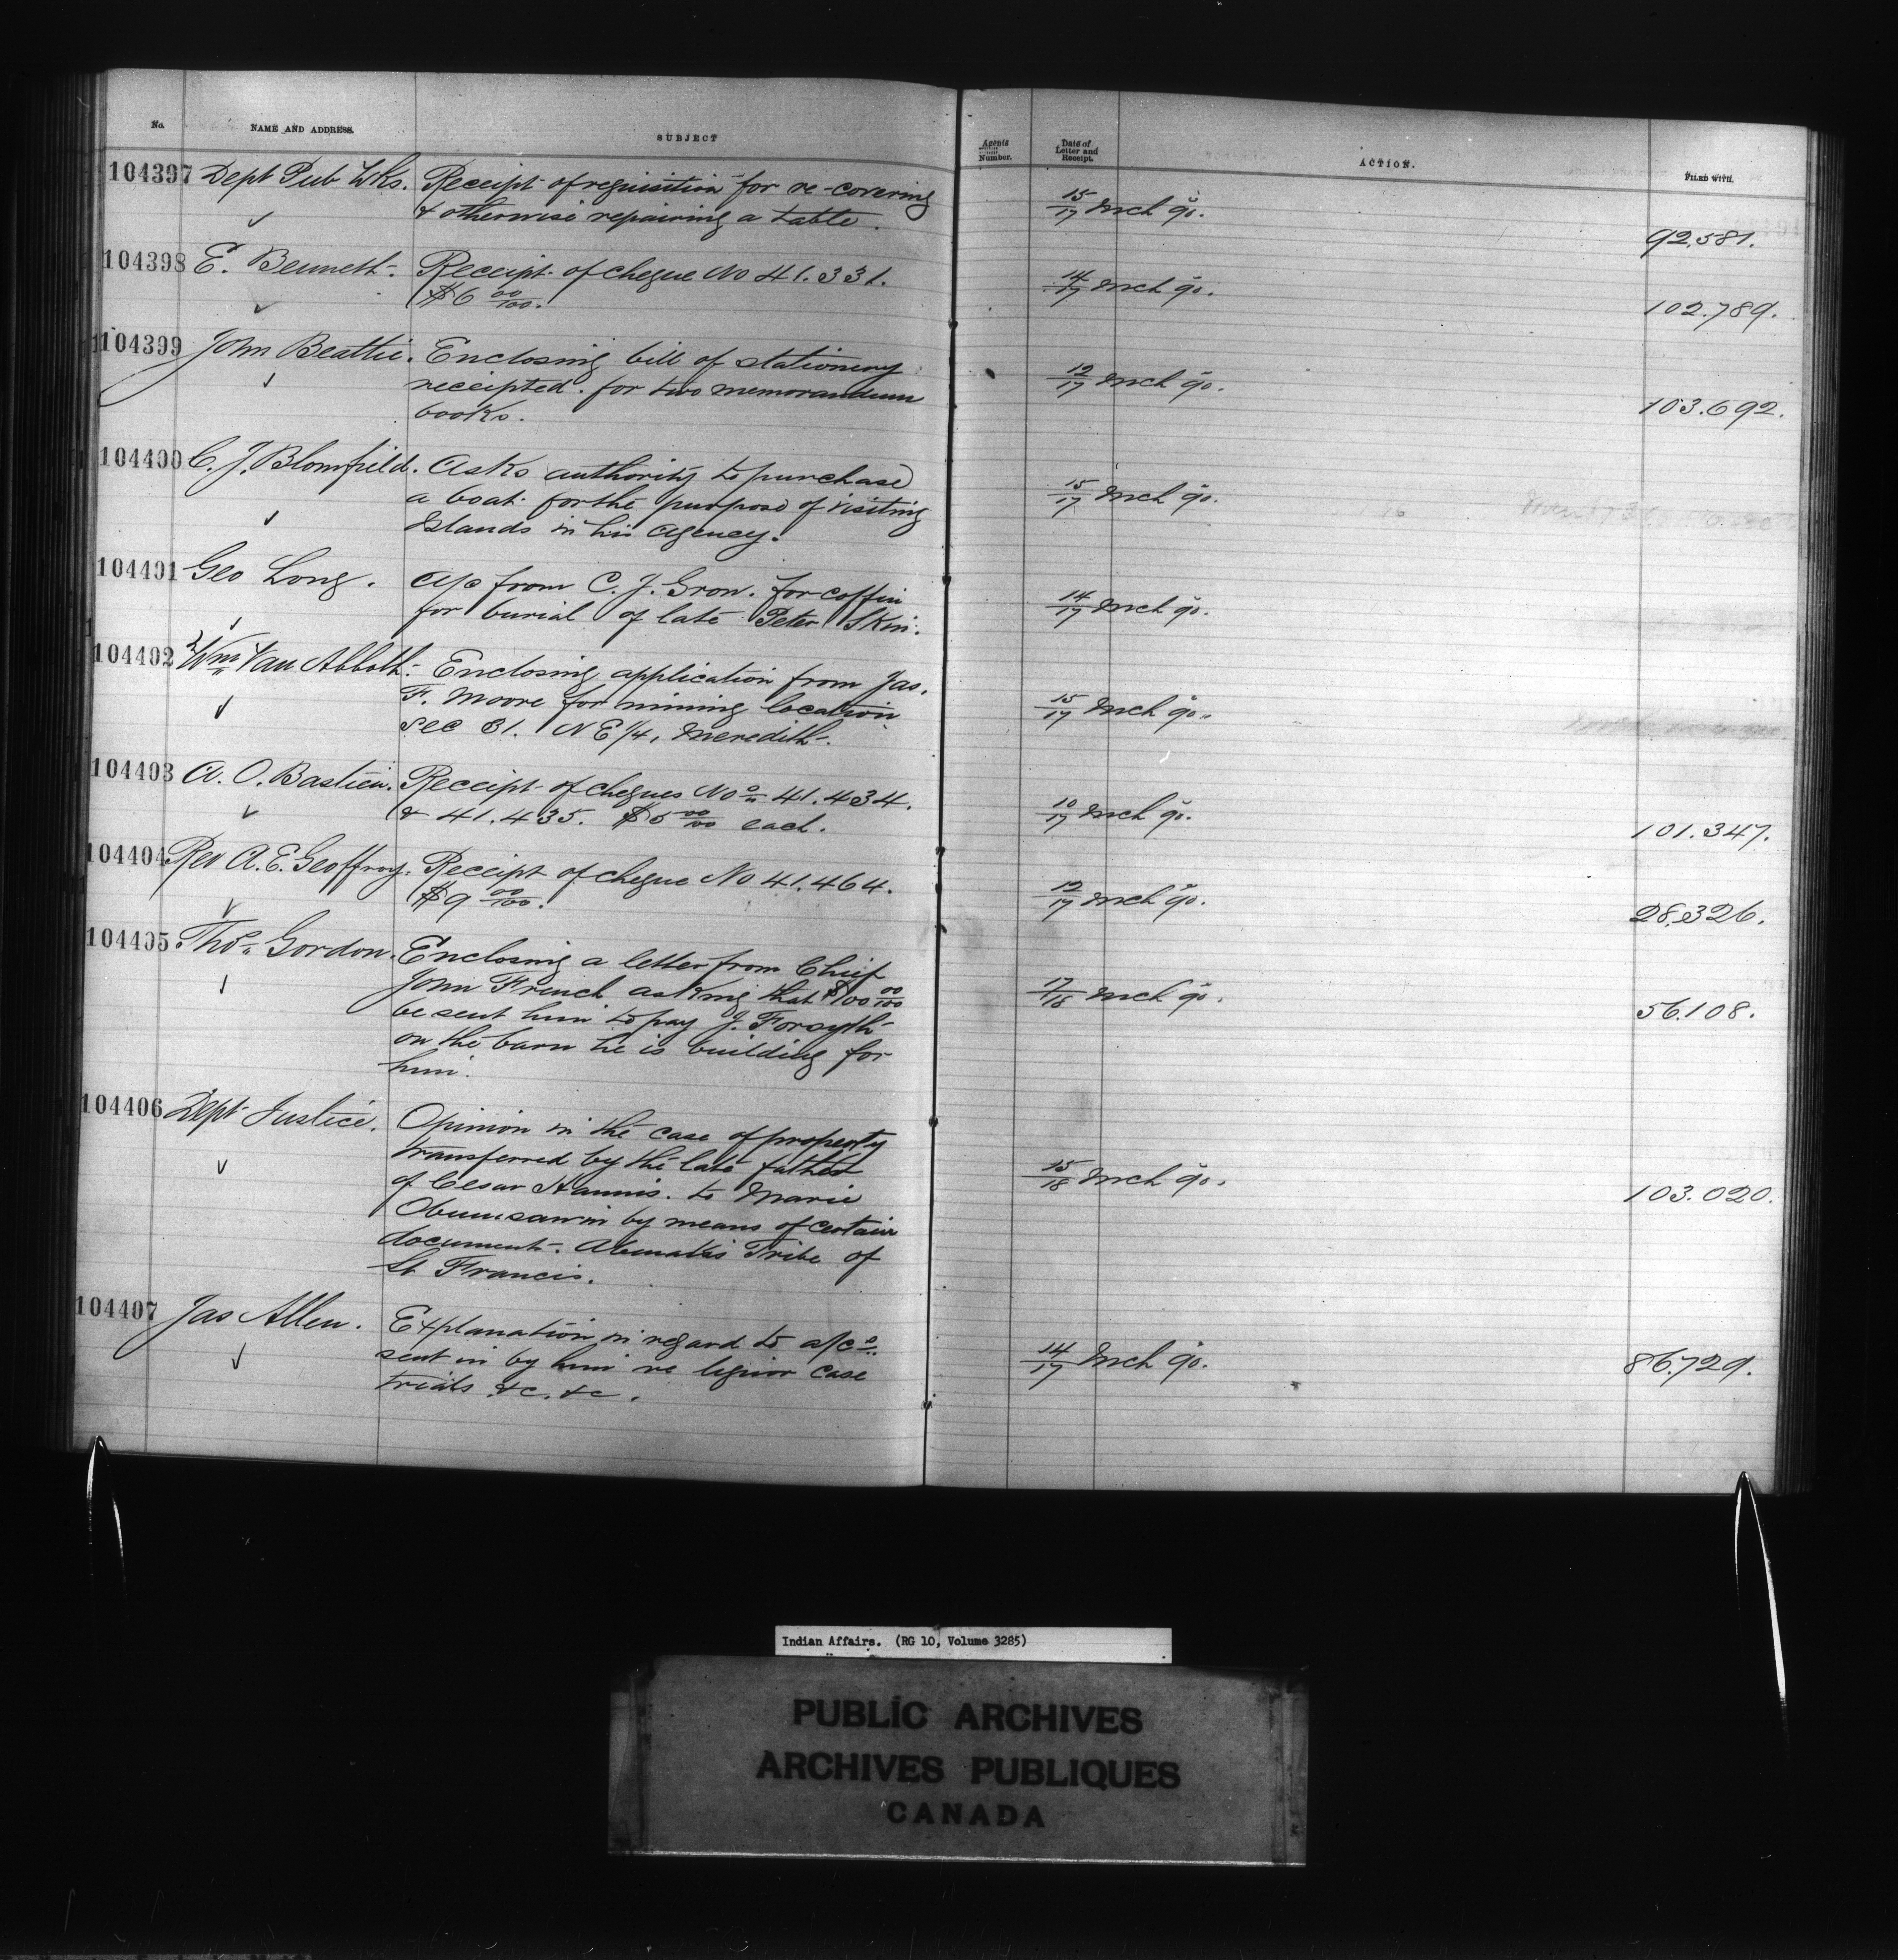 No. NAME AND ADDRESS. SUBJECT
Agents Number. Date of Letter and Receipt. ACTION. FILED WITH.
104397 Dept Pub Wks. Receipt of requisition for re-covering
& otherwise repairing a table.
15/17 Mch 90. 92,581.
104398 E. Bennett. Receipt of cheque No 41.331.
$6 00/100.
14/17 Mch 90. 102.789.
104399 John Beattie. Enclosing bill of stationery
receipted. for two memorandum
books.
12/17 Mch 90. 103.692.
104400 C. J. Blomfield. Asks authority to purchase
a boat for the purpose of visiting
Islands in his Agency.
15/17 Mch 90.
104401 Geo Long. a/c from C. J. Gron. for coffin
for burial of late Peter Skin.
14/17 Mch 90.
104402 Wm Van Abbott. Enclosing application from Jas.
F. Moore for mining location
Sec 31. NE 1/4, Meredith.
15/17 Mch 90.
104403 A. O. Bastien. Receipt of cheques Nos 41.434.
& 41.435. $5 00/100 each.
10/17 Mch 90. 101.347.
104404 Rev A. E. Geoffroy. Receipt of cheque No 41.464.
$9 00/100.
12/17 Mch 90. 28,326.
104405 Thos Gordon. Enclosing a letter from Chief
John French asking that $100 00/100
be sent him to pay J. Forsyth
on the barn he is building for
him.
17/18 Mch 90. 56.108.
104406 Dept Justice. Opinion in the case of property
transferred by the late father
of Cesar Hannis. to Marie
Obumsawin by means of certain
document. Abenakis Tribe of
St Francis.
15/18 Mch 90. 103.020.
104407 Jas Allen. Explanation in regard to a/cs
sent in by him re liquor case
trials &c. &c.
14/17 Mch 90. 86.729.
Indian Affairs. (RG 10, Volume 3285)
PUBLIC ARCHIVES
ARCHIVES PUBLIQUES
CANADA